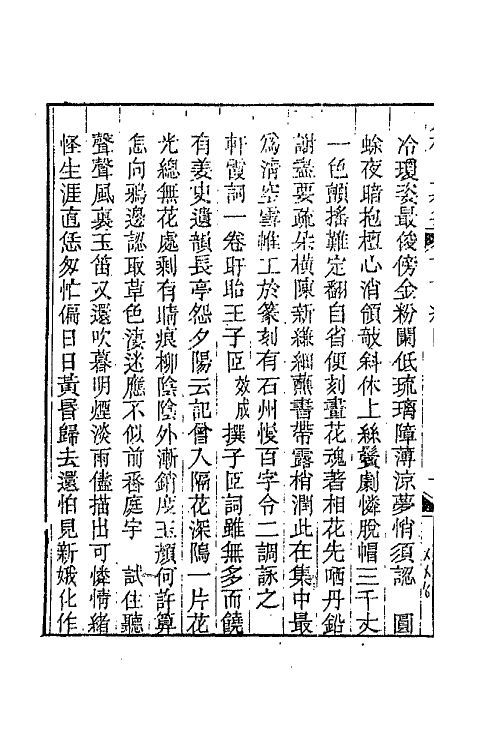 冷瓊姿最俊傍金粉闌低琉璃障薄涼夢悄須認　圓
蜍夜暗抱檀心消領敧斜休上絲鬢劇憐脫帽三千丈
一色顛搖難定翻自省便刻畫花魂著相花先哂丹鉛
謝盡要疏朵橫陳新縑細蘸書帶露梢潤此在集中最
爲清空雪帷工於篆刻有石州慢百字令二調詠之
軒霞詞一卷盱眙王子臣效成撰子臣詞雖無多而饒
有姜史遺韻長亭怨夕陽云記曾入隔花深隖一片花
光總無花處剩有晴痕柳陰陰外漸銷度玉顏何許算
怎向鴉邊認取草色淒迷應不似前番庭宇　試住聽
聲聲風裏玉笛又還吹暮明煙淡雨儘描出可憐情緒
怪生涯直恁匆忙偏日日黃昏歸去還怕見新娥化作